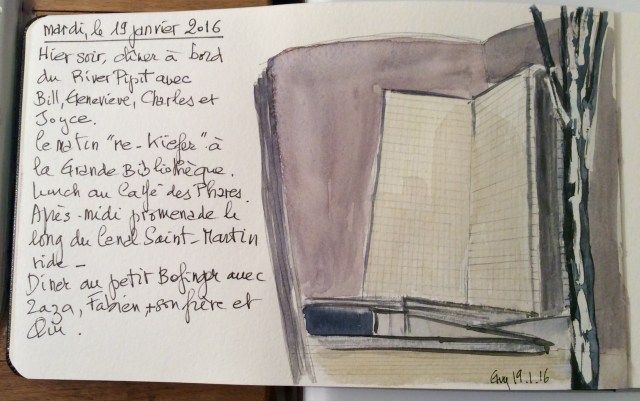 mardi, le 19 janvier 2016
Hier soir, dîner à bord
du River Pipit avec
Bill, Geneviève, Charles et
Joyce.
Ce matin "re-Kiefer" à
la Grande Bibliothèque.
Lunch au Café des Phares.
Après-midi promenade le
long du Canal Saint-Martin
vide -
Dîner au petit Bofinger avec
Zaza, Fabien, + son frère et
Guy 19.1.16